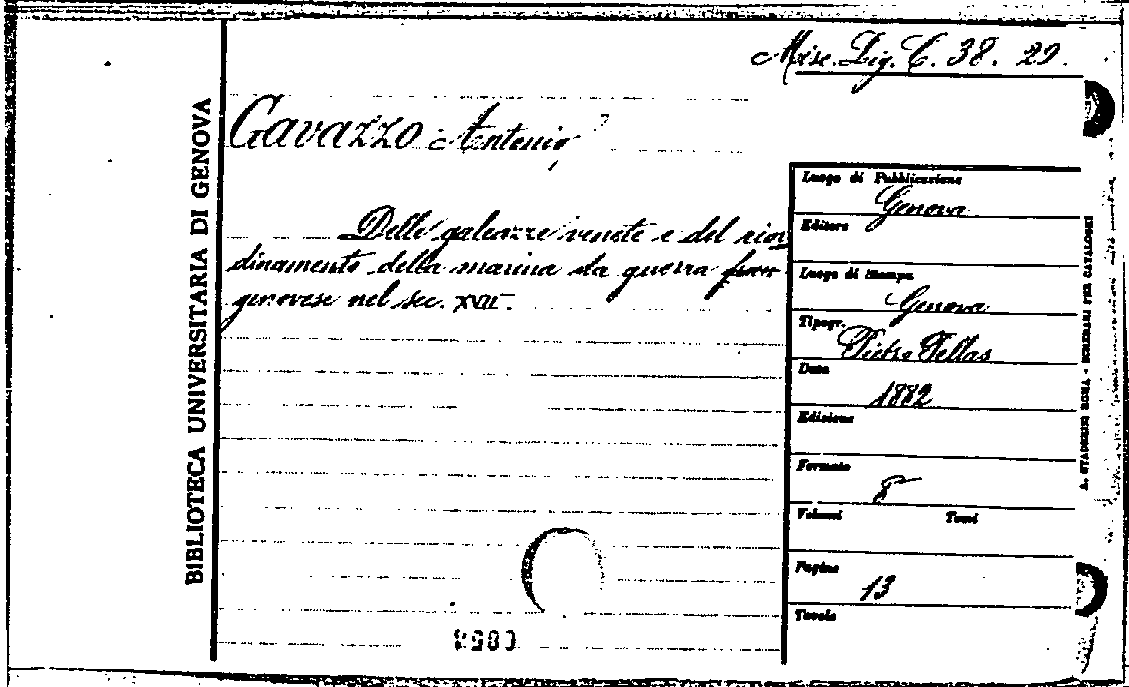 Misc. Lig. C. 38. 29.
BIBLIOTECA UNIVERSITARIA DI GENOVA
Gavazzo Antonio
Delle galeazze venete e del rior
dinamento della marina da guerra
genovese nel sec. XVII.
Luogo di Pubblicazione
Genova
Editore
Luogo di Stampa
Genova
Tipogr.
Pietro Pellas
Data
1882
Edizione
Formato
8°
Volumi Tomi
Pagine
13
Tavole
A. STADERINI ROMA - SCHEDARI PER CATALOGHI